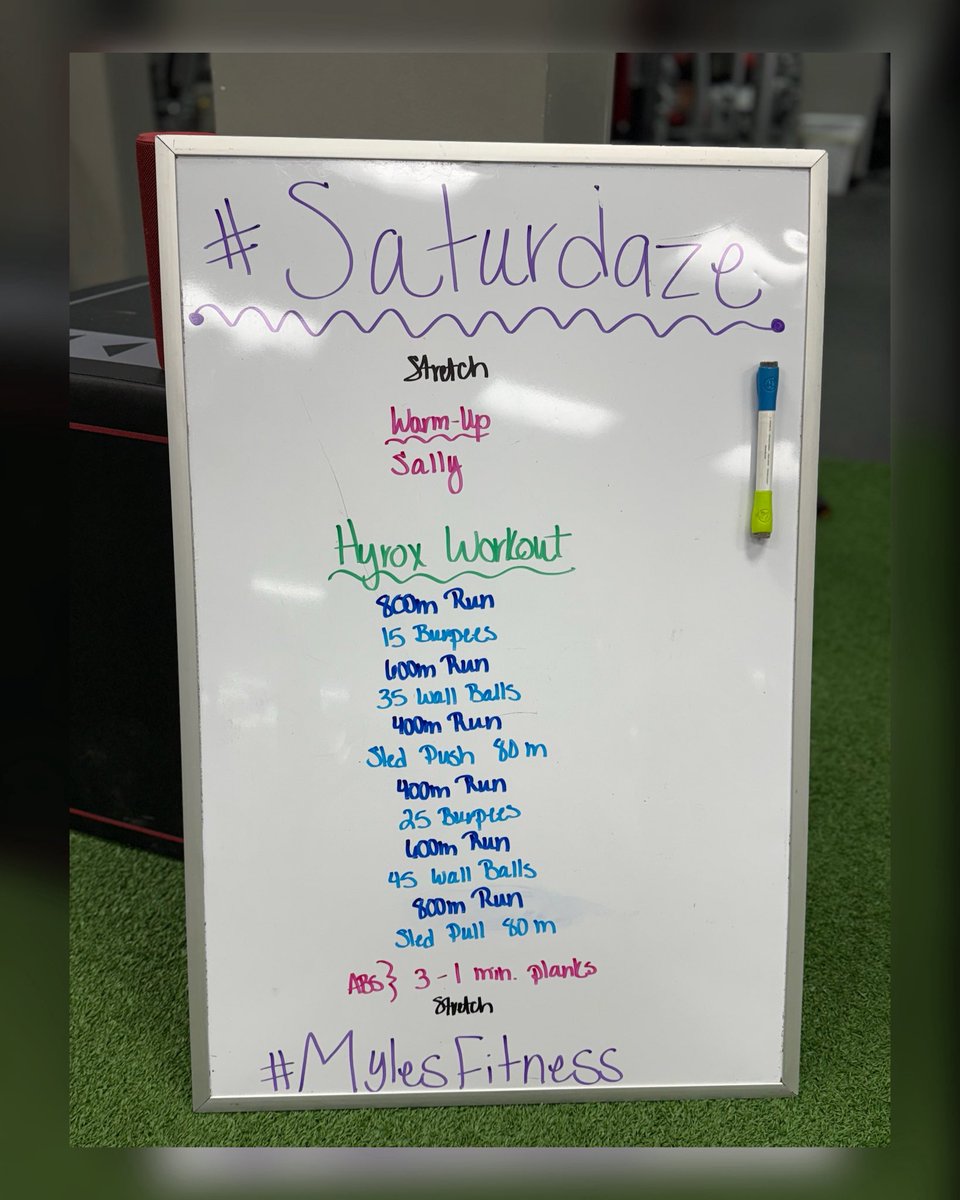 #Saturdaze
Stretch
Warm-Up
Sally
Hyrox Workout
800m Run
15 Burpees
600m Run
35 Wall Balls
400m Run
Sled Push 80m
400m Run
25 Burpees
600m Run
45 Wall Balls
800m Run
Sled Pull 80m
ABS} 3-1 min. planks
Stretch
#MylesFitness